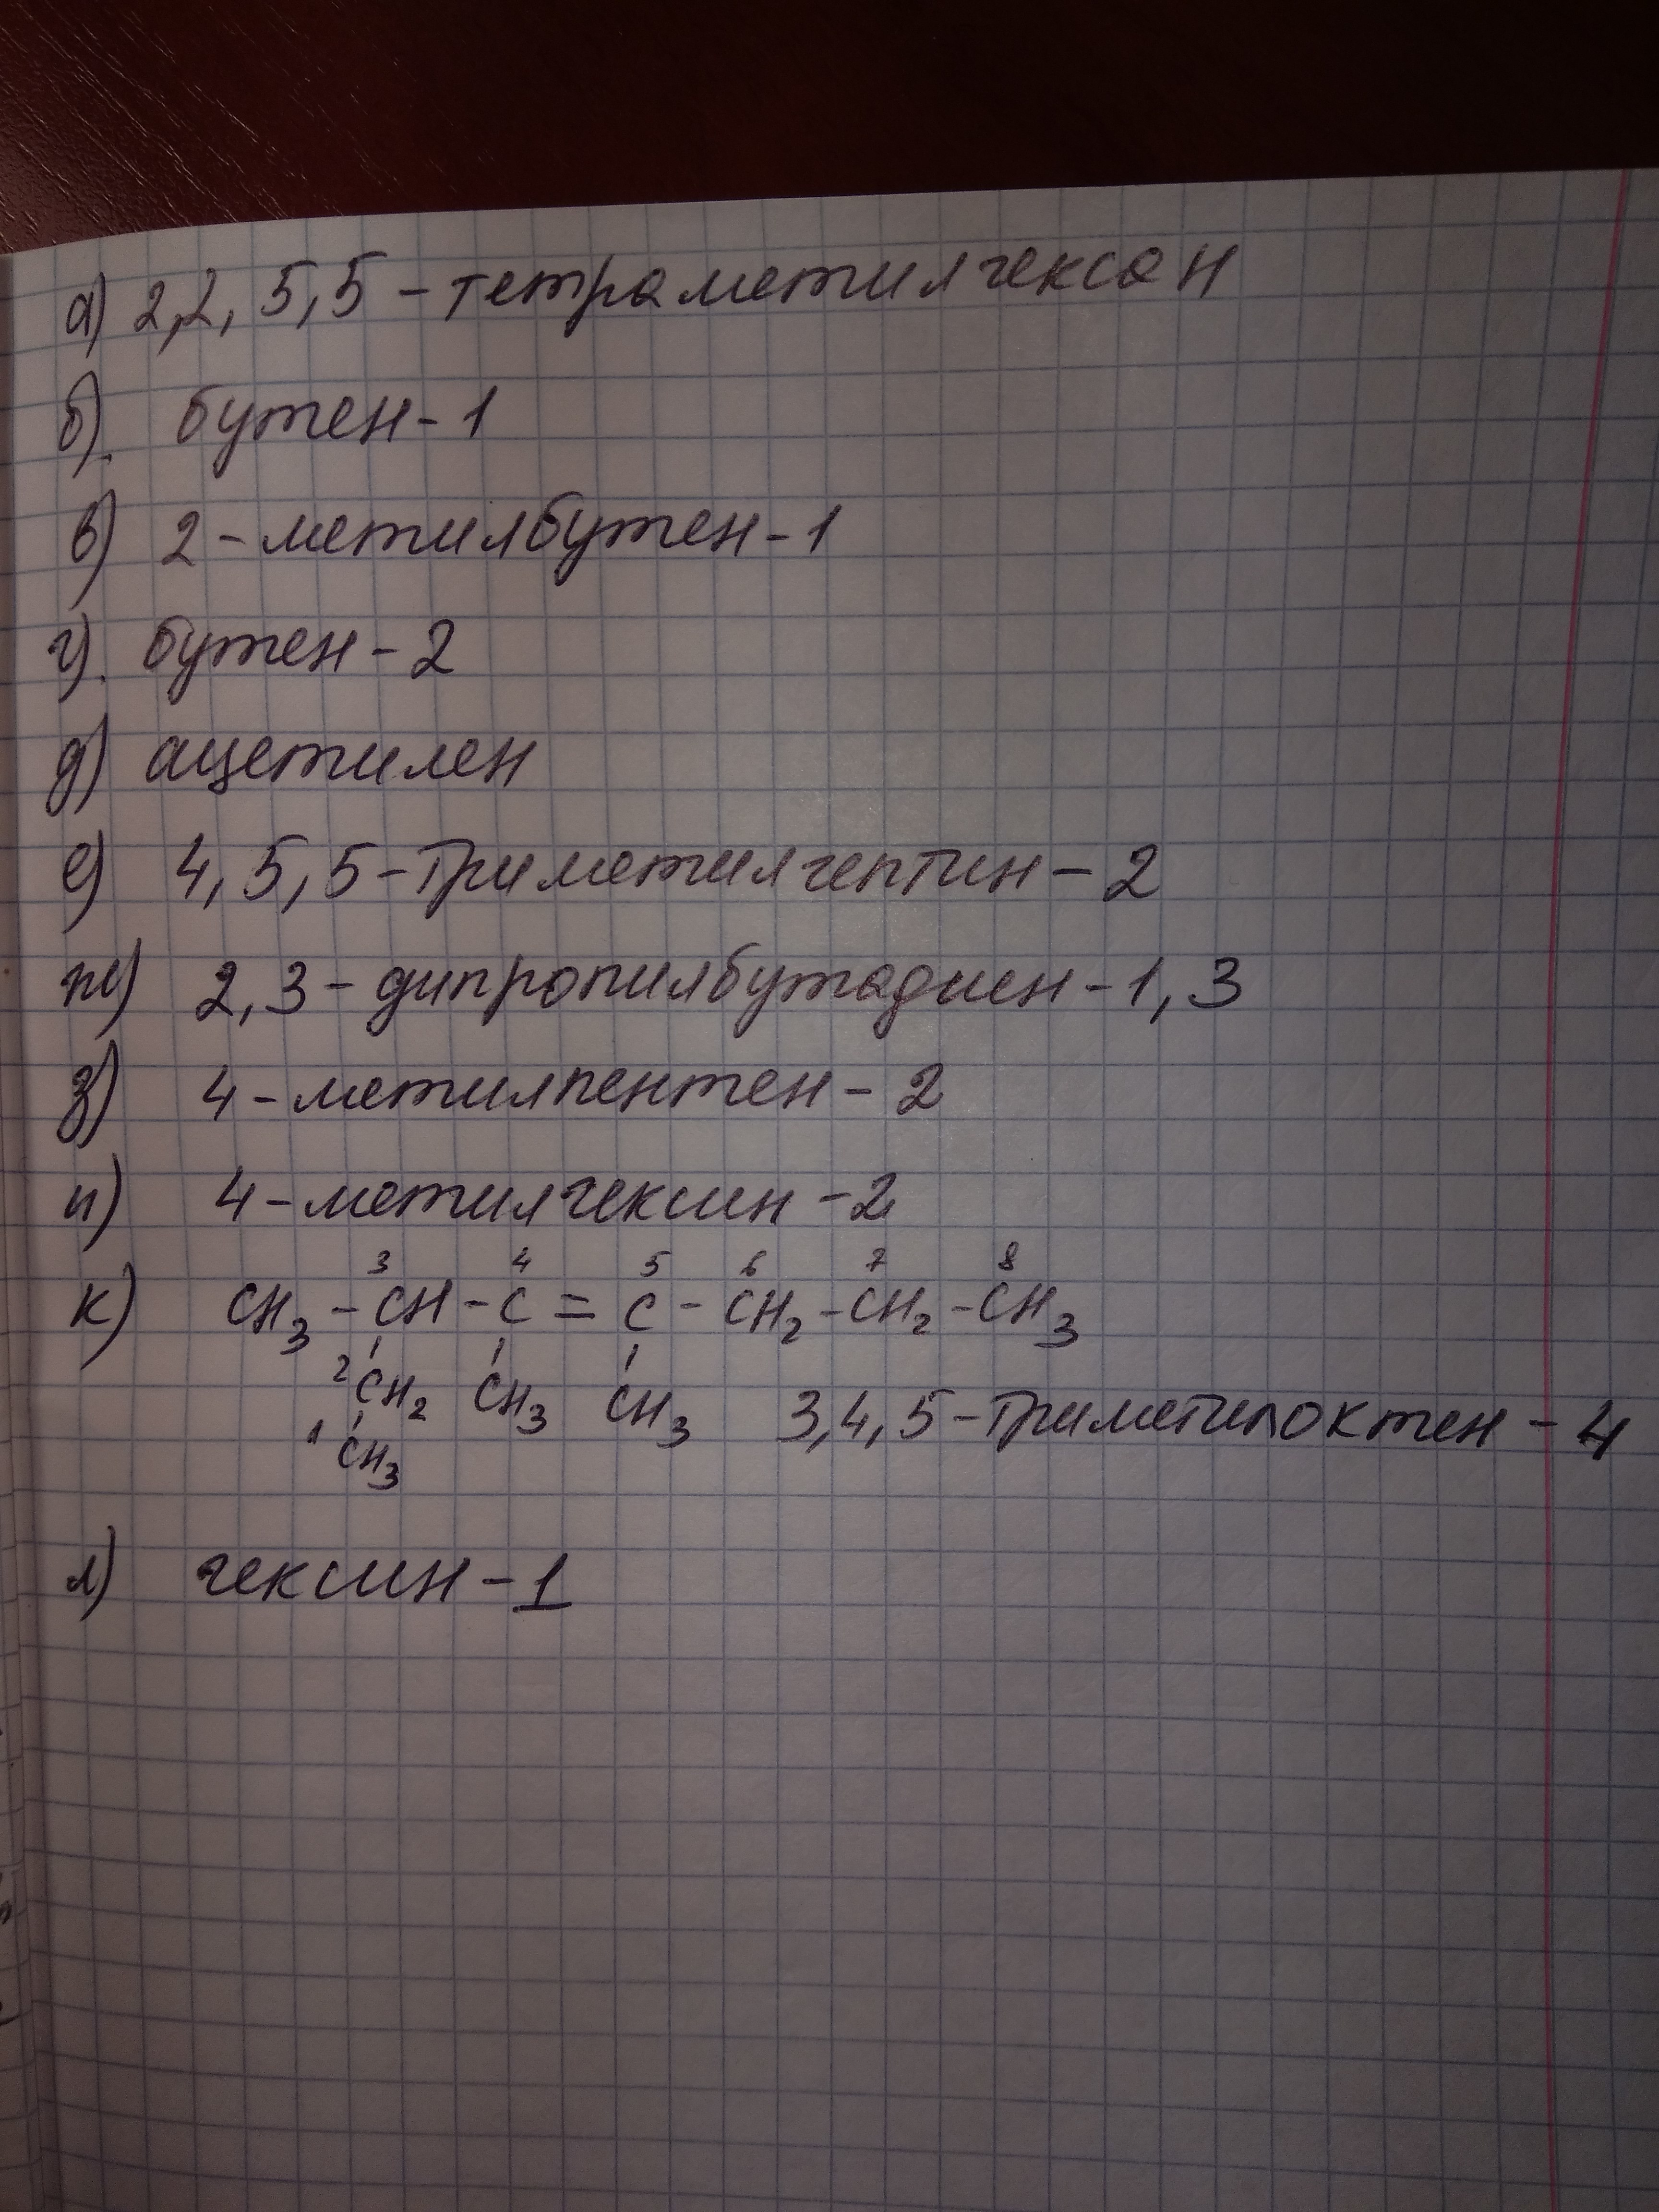 а) 2,2, 5,5 - тетраметилгексан
б). бутен-1
в) 2-метилбутен-1
г). бутен-2
д) ацетилен
е) 4, 5, 5-триметилгептин-2
ж) 2,3-дипропилбутадиен-1,3
з) 4-метилпентен-2
и) 4-метилгексин-2
3 4 5 6 7 8
к) CH3 - CH - C = C - CH2 - CH2 - CH3
2 CH2 CH3 CH3 3,4,5-триметилоктен-4
1 CH3
л) гексин-1